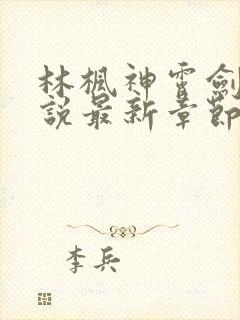 林楓神霄劍
說最新章節
李兵